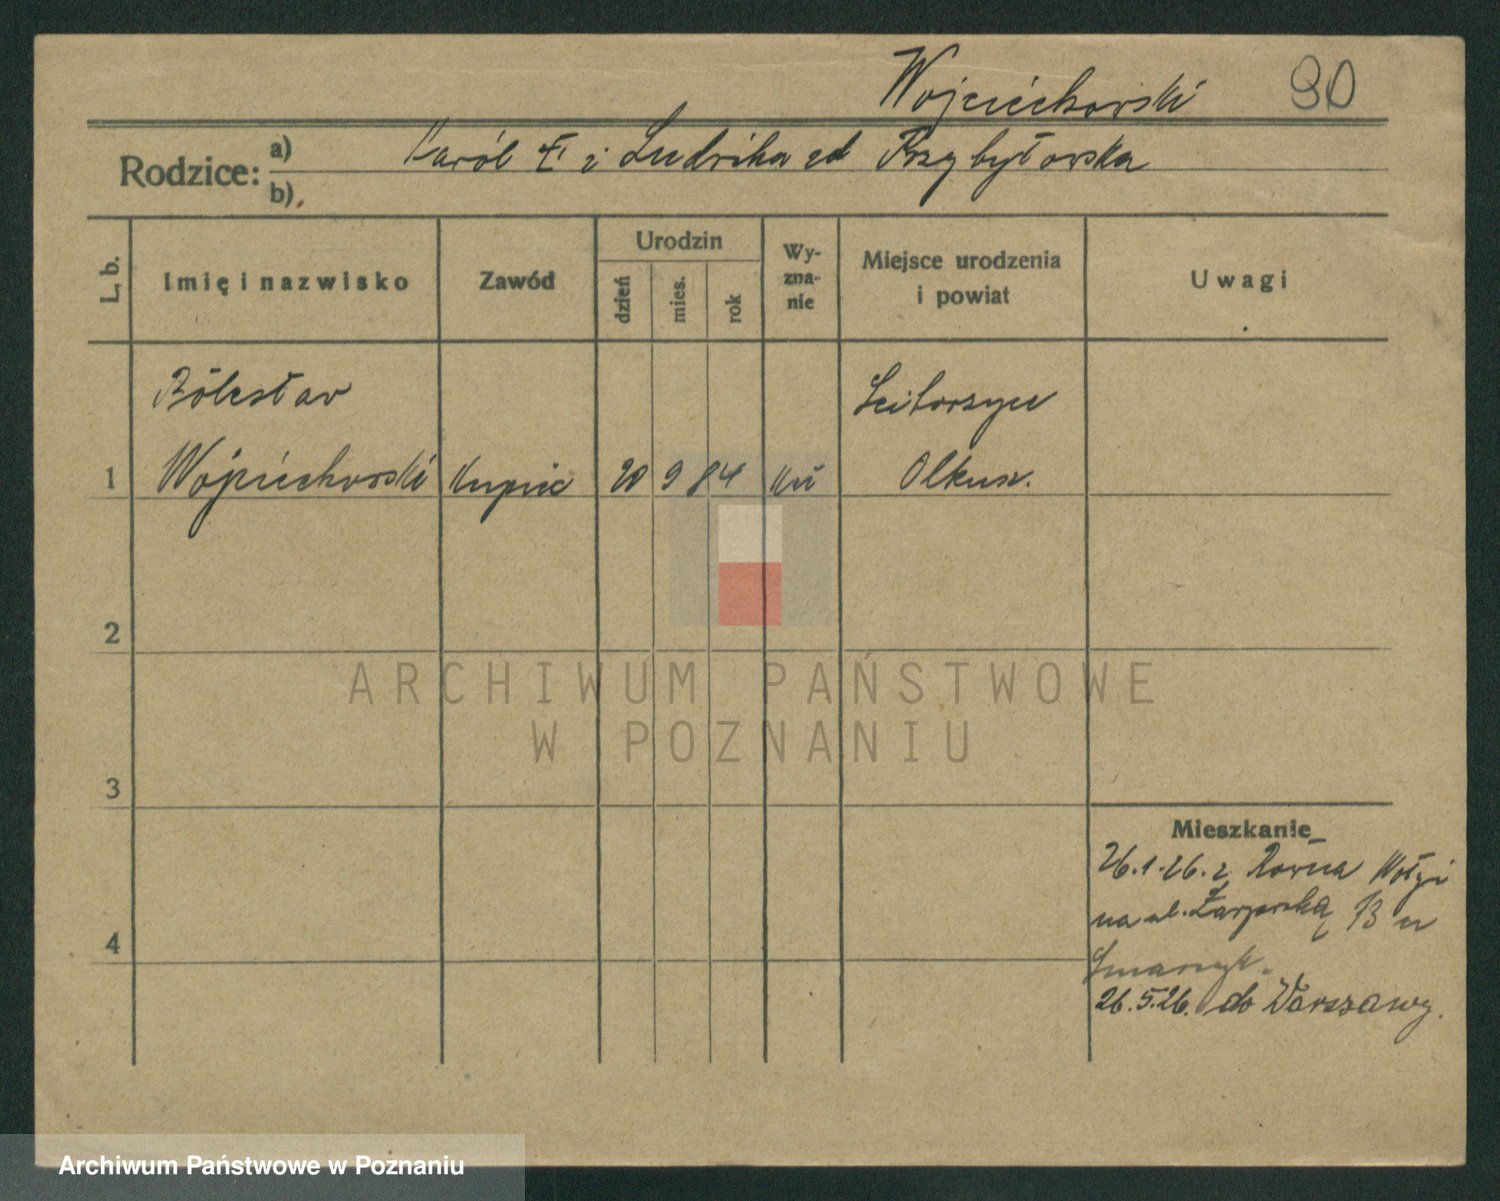 Wojciechowski 90
Rodzice: a) Karól i Ludwika zd Przybyłowska
b)
L. b.
Imię i nazwisko
Zawód
Urodzin
dzień
mies.
rok
Wy-
zna-
nie
Miejsce urodzenia
i powiat
Uwagi
Bólesław
Wojciechowski
1
Kupiec
20 9 84
Olkusz.
2
3
4
ARCHIWUM PAŃSTWOWE
W POZNANIU
Mieszkanie
26.1.26. z Równa Wołyń
na ul. 13 u
26.5.26. do Warszawy.
Archiwum Państwowe w Poznaniu